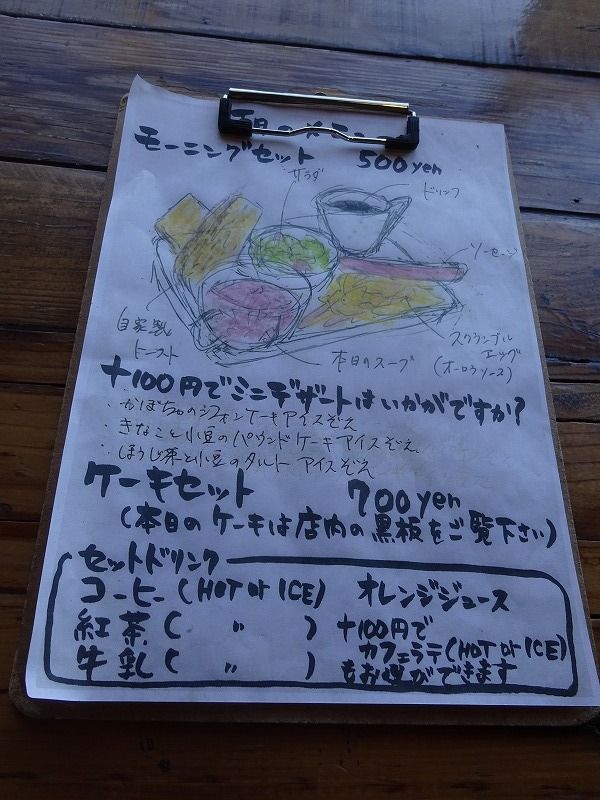 モーニングセット 500yen
サラダ
ドリンク
ソーセージ
自家製
トースト
本日のスープ
スクランブル
エッグ
(オーロラソース)
+100円でミニデザートはいかがですか?
・かぼちゃのシフォンケーキアイスぞえ
・きなこと小豆のパウンドケーキアイスぞえ
・ほうじ茶と小豆のタルト アイスぞえ
ケーキセット 700yen
(本日のケーキは店内の黒板をご覧下さい)
セットドリンク
コーヒー(HOT or ICE) オレンジジュース
紅茶( 〃 ) +100円で
カフェラテ(HOT or ICE)
牛乳( 〃 ) もお選びができます